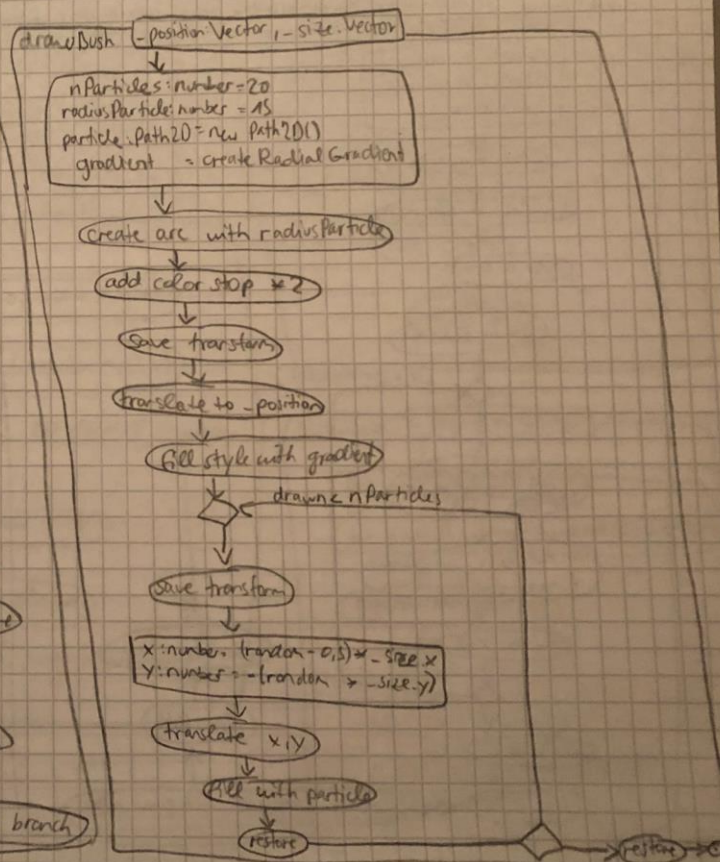 drawBush
_position:Vector, _size:Vector
nParticles:number=20
radiusParticle:number = 15
particle:Path2D = new Path2D()
gradient = createRadialGradient
create arc with radiusParticle
add color stop *2
save transform
translate to _position
fill style with gradient
drawn < nParticles
save transform
x:number = (random - 0,5) * _size.x
y:number = -(random * _size.y)
translate x,y
fill with particle
branch
restore
restore